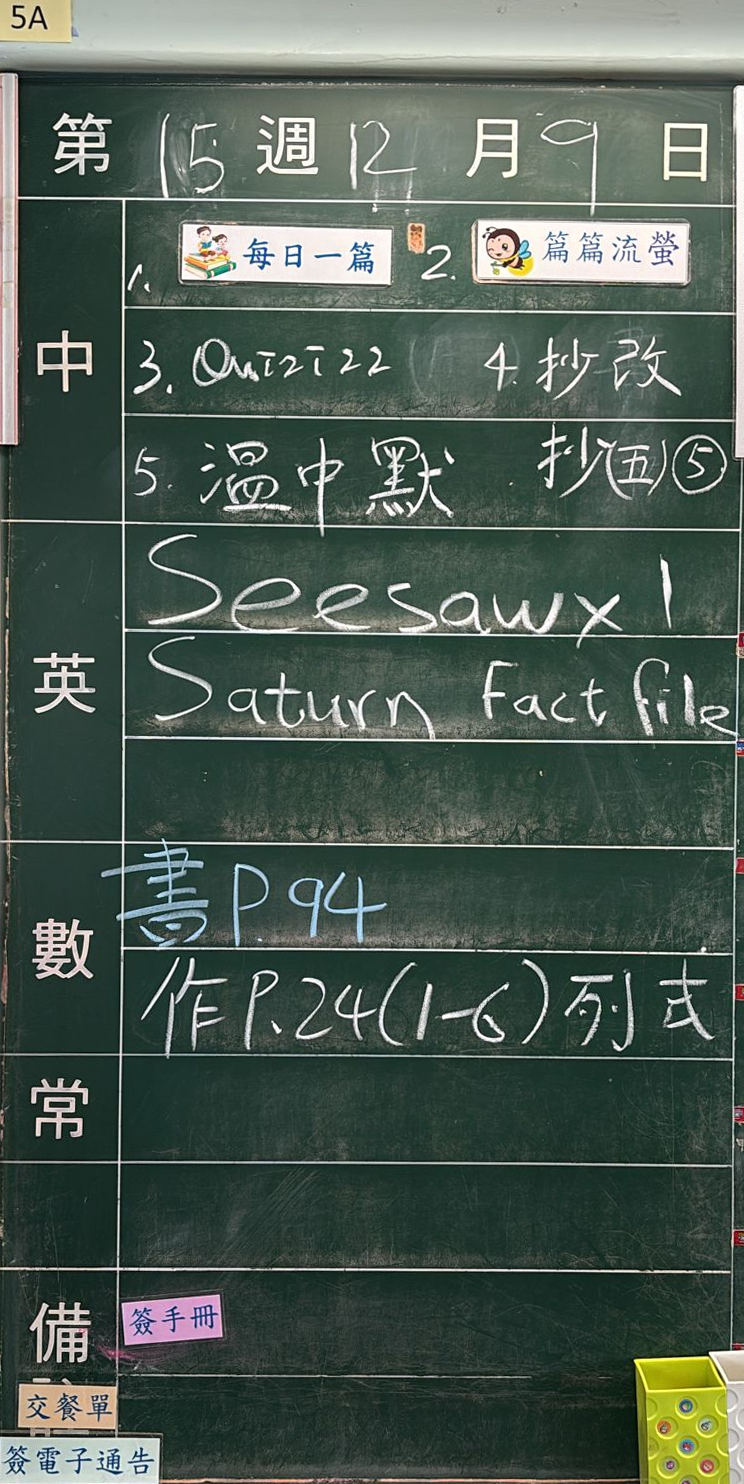 5A
第 15 週 12 月 9 日
中
1. 每日一篇 2. 篇篇流螢
3. Quizizz 4. 抄改
5. 溫中默 抄(五)⑤
英
Seesaw x 1
Saturn Fact file
數
書 P.94
作 P.24(1-6)列式
常
備
簽手冊
交餐單
簽電子通告